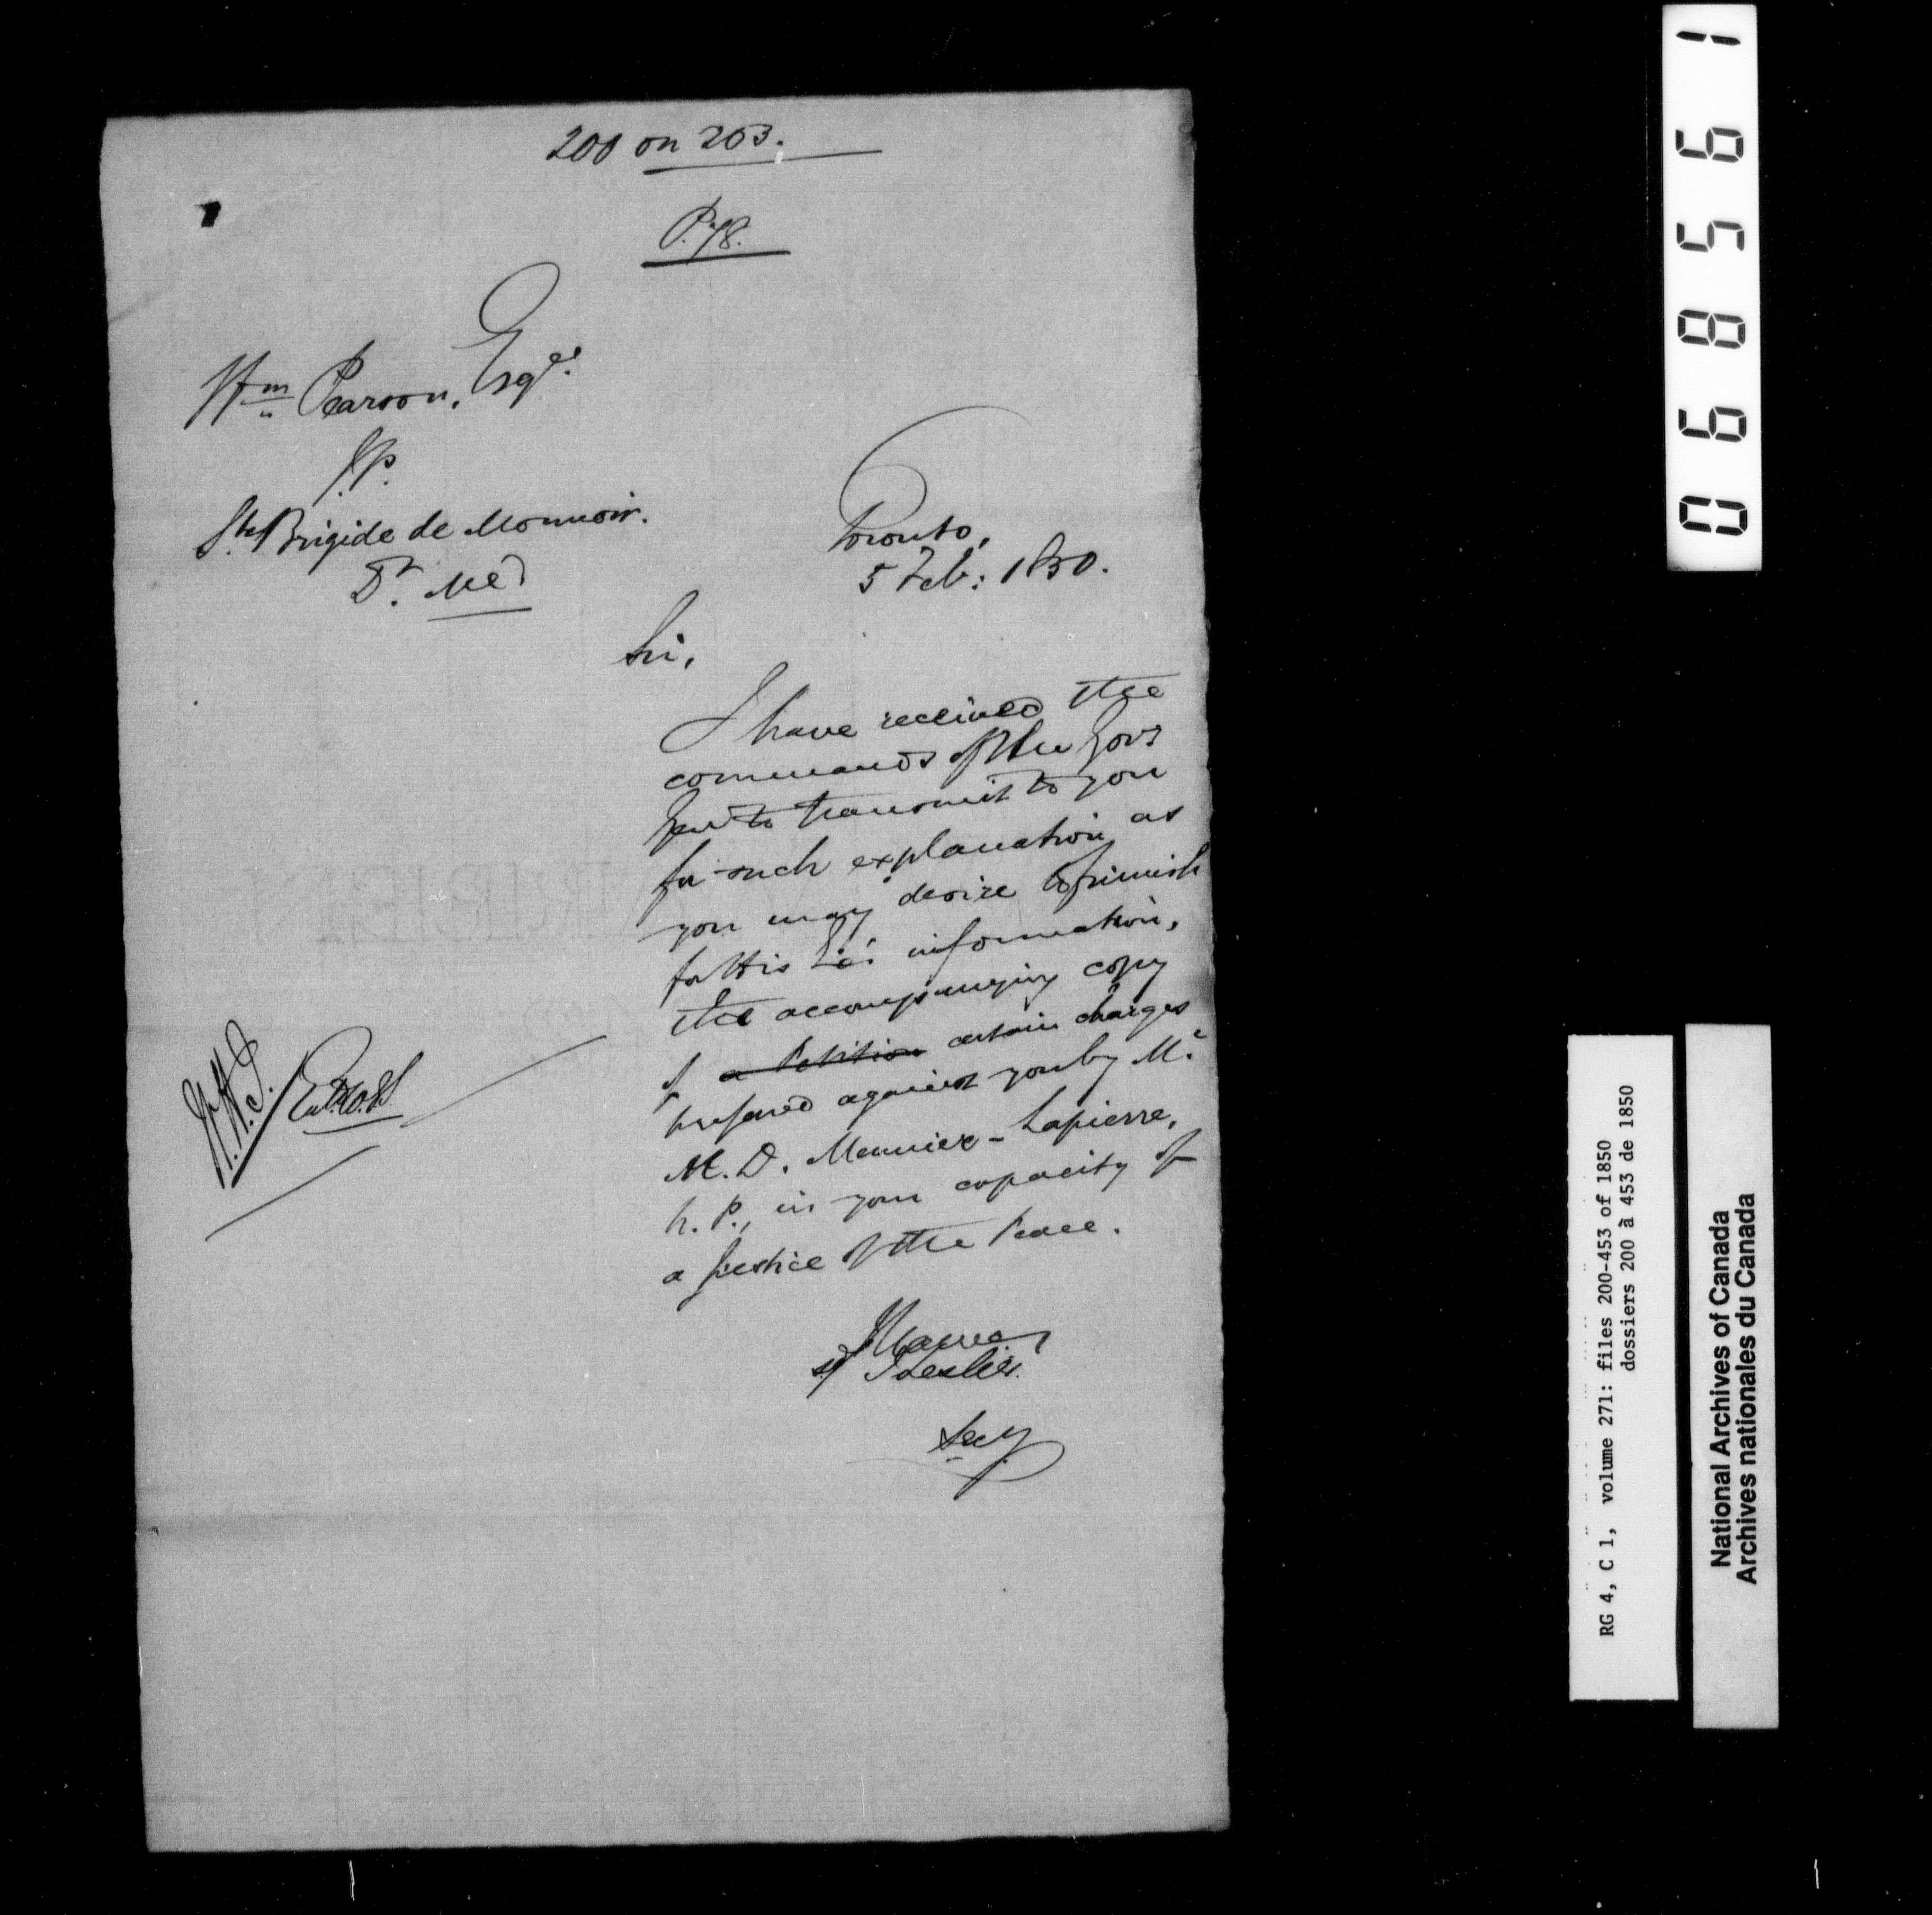 200 on 203.
P. 78.
Wm Pearson, Esqre
J.P.
Ste Brigide de Monnoir.
Toronto,
5 Feb: 1850.
Sir,
I have received the
commands of the Govr
Genl to transmit to you
for such explanation as
you may desire to furnish
for His Ex: information,
the accompanying copy
of a Petition certain charges
prefered against you by Mr
M. D. Meunier-Lapierre,
N. P., in your capacity of
a Justice of the Peace.
J Leslie.
Secy
069561
068561
RG 4, C 1, volume 271: files 200-453 of 1850
dossiers 200 à 453 de 1850
National Archives of Canada
Archives nationales du Canada